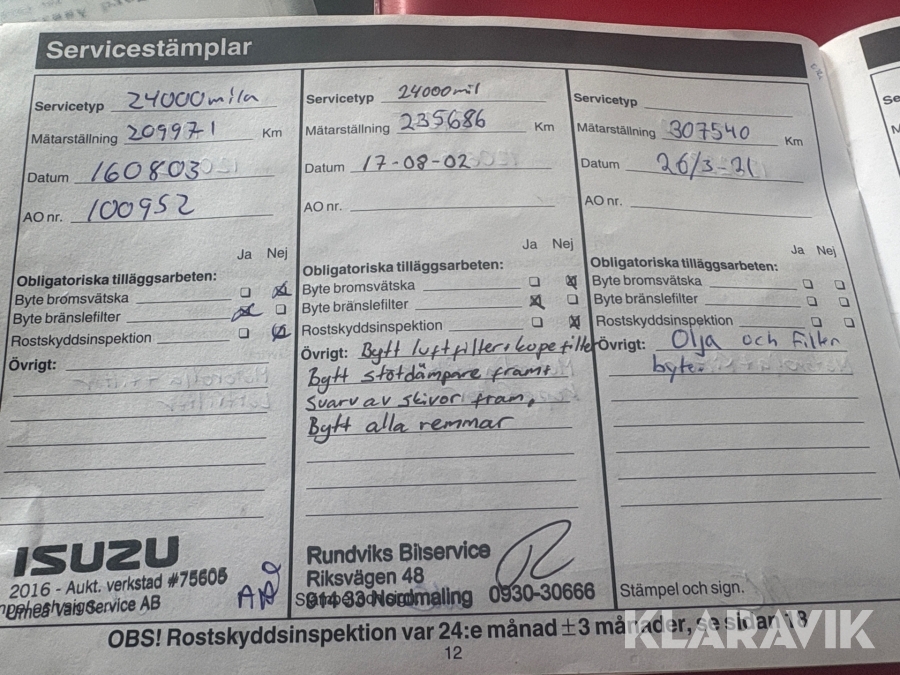 Servicestämplar
Servicetyp 24000mila
Mätarställning 209971 Km
Datum 160803
AO nr. 100952
Ja Nej
Obligatoriska tilläggsarbeten:
Byte bromsvätska
Byte bränslefilter
Rostskyddsinspektion
Övrigt:
ISUZU
2016 - Aukt. verkstad #75605
Service AB
Servicetyp 24000mil
Mätarställning 235686 Km
Datum 17-08-02
AO nr.
Ja Nej
Obligatoriska tilläggsarbeten:
Byte bromsvätska
Byte bränslefilter
Rostskyddsinspektion
Övrigt: Bytt luftfilter+kopefilter
Bytt stötdämpare framt
svarv av skivor fram,
Bytt alla remmar
Rundviks Bilservice
Riksvägen 48
914 33 Nordmaling 0930-30666
Servicetyp
Mätarställning 307540 Km
Datum 26/3-21
AO nr.
Ja Nej
Obligatoriska tilläggsarbeten:
Byte bromsvätska
Byte bränslefilter
Rostskyddsinspektion
Övrigt: Olja och filter
byte.
Stämpel och sign.
OBS! Rostskyddsinspektion var 24:e månad ±3 månader, se sidan 18
12
KLARAVIK